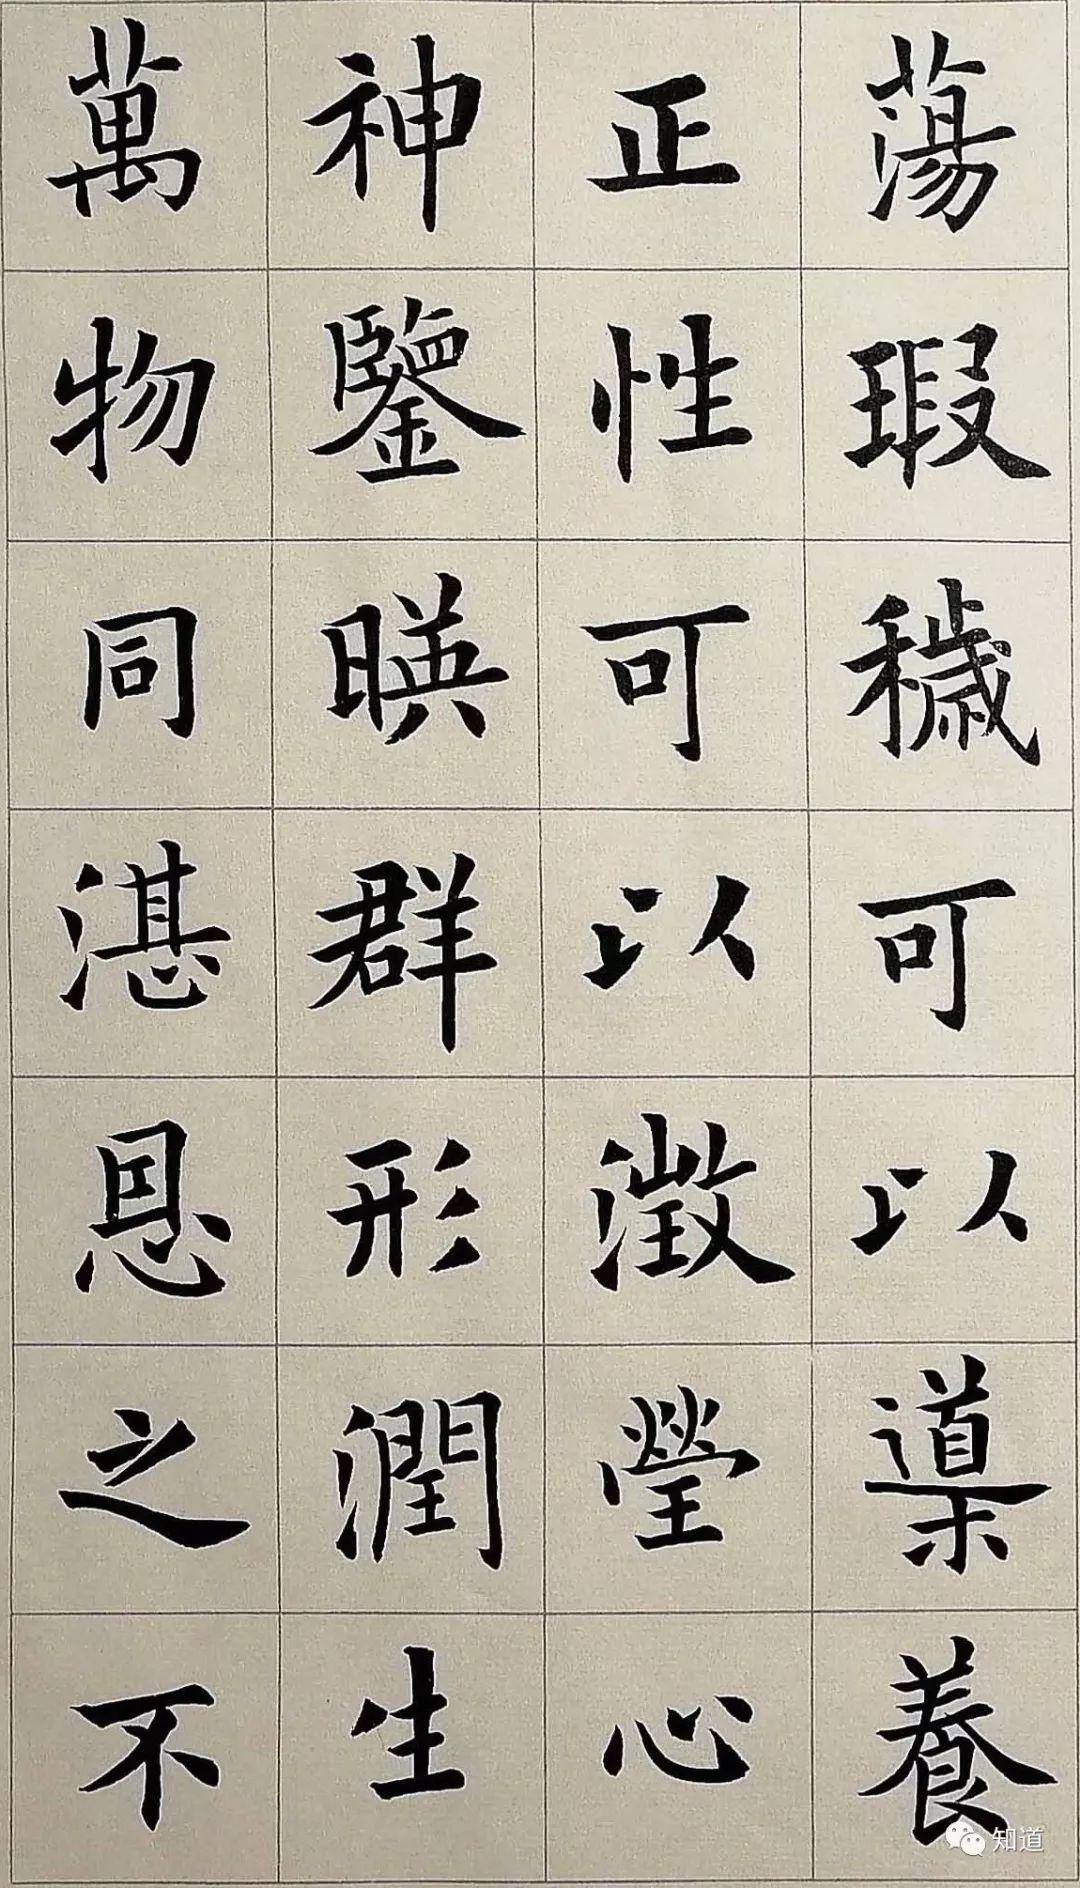 蕩瑕穢可以導養
正性可以澂瑩心
神鑒暎群形潤生
萬物同湛恩之不
知道